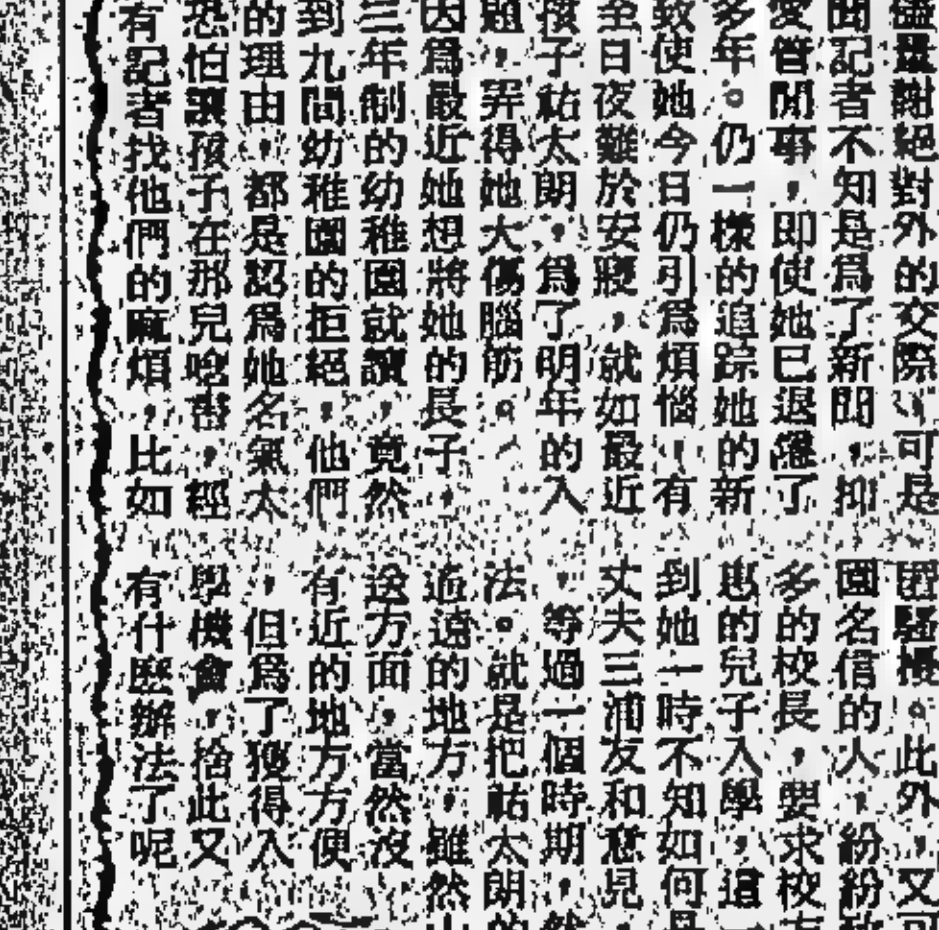 儘量謝絕對外的交際,可是
聞記者不知是爲了新聞,抑
愛管閒事,即使她已退隱了
多年。仍一樣的追踪她的新
致使她今日仍引爲煩惱,有
至日夜難於安寢,就如最近
孩子祐太朗,爲了明年的入
題,弄得她大傷腦筋。
因爲最近她想將她的長子,
三年制的幼稚園就讀,竟然
到九間幼稚園的拒絕,他們
的理由,都是認爲她名氣太
恐怕讓孩子在那兒唸書,經
有記者找他們的麻煩,比如
騷擾。此外,又可
園名信的人,紛紛致
多的校長,要求校
惠的兒子入學,這一
到她一時不知如何是
丈夫三浦友和意見
,等過一個時期,然
法。就是把祐太朗的
遙遠的地方,雖然
送方面,當然沒
有近的地方方便
,但爲了獲得入
學機會,捨此又
有什麼辦法了呢